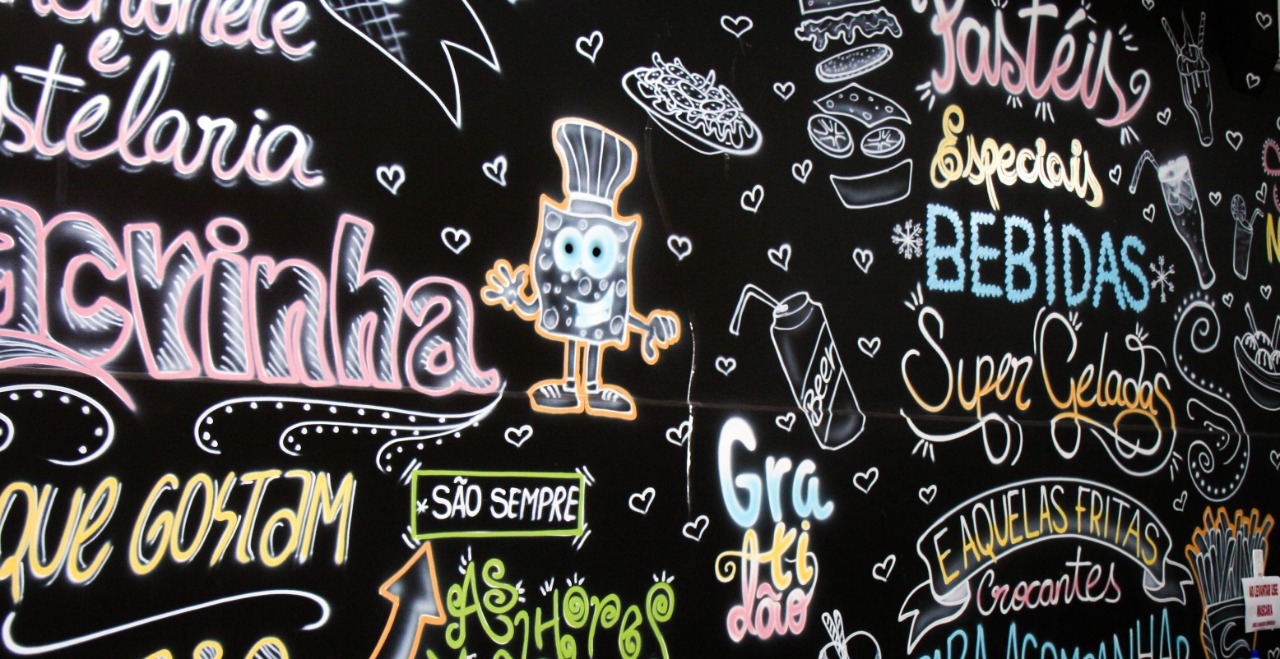 nchonete
e
stelaria
acrinha
QUE GOSTAM
SÃO SEMPRE
AS
Beer
Gra
ti
dão
Pastéis
Especiais
BEBIDAS
Super Geladas
E AQUELAS FRITAS
Crocantes
PARA ACOMPANHAR
AO LEVANTAR USE
MÁSCARA